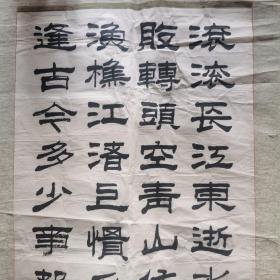 滚滚長江東逝水
敗轉頭空青山依
漁樵江渚上慣
逢古今多少事都